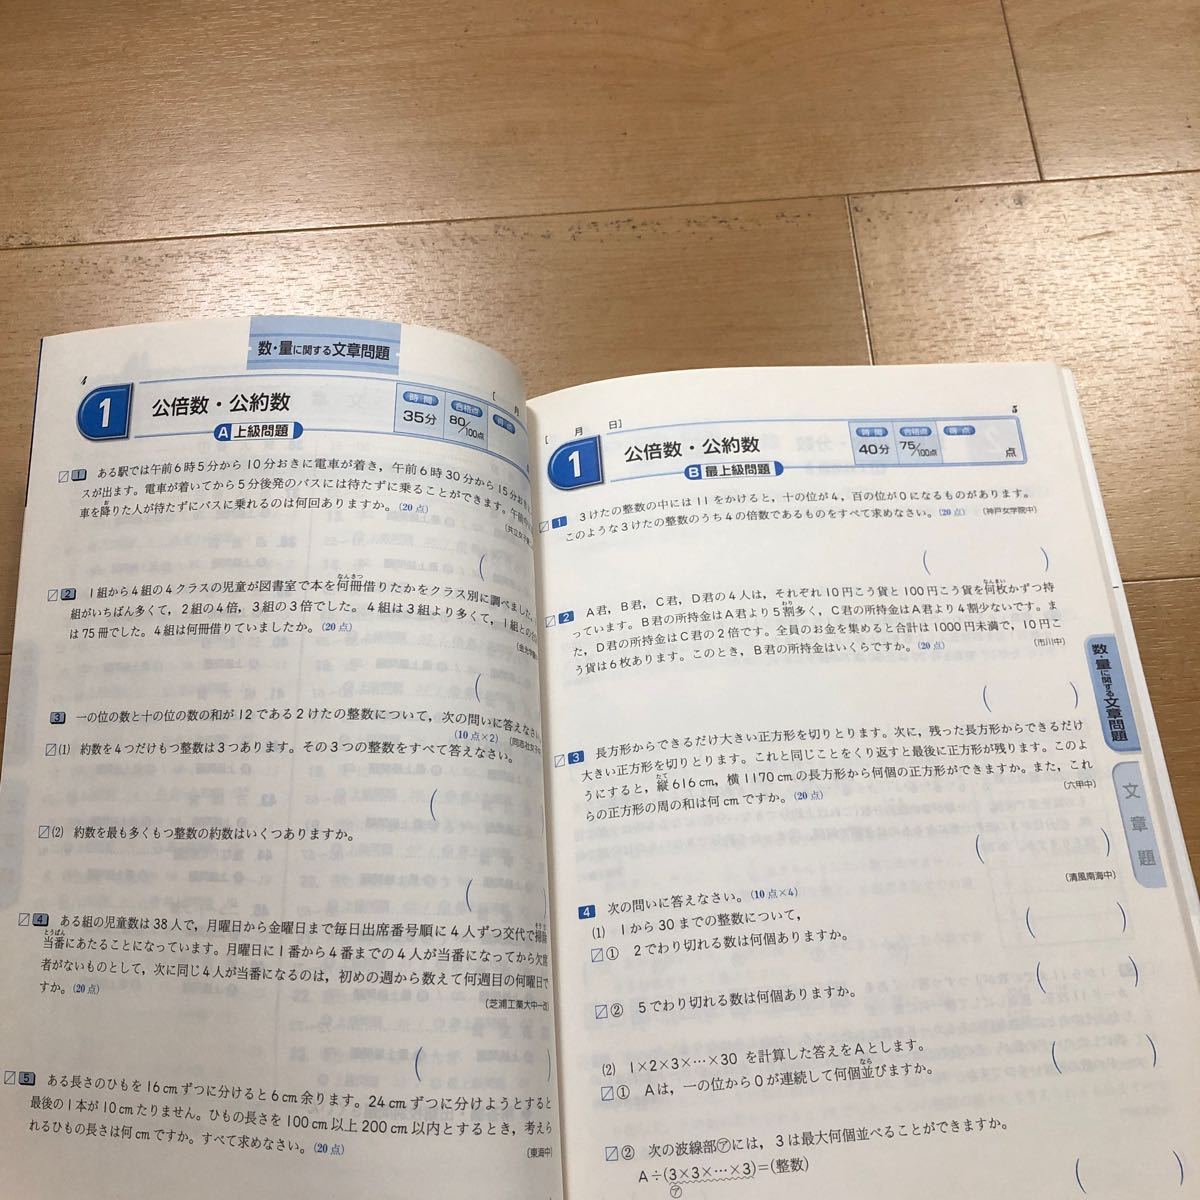 4
数・量に関する文章問題
1
公倍数・公約数
A 上級問題
時間
35分
合格点
80/100点
得点
[ 月
1 ある駅では午前6時5分から10分おきに電車が着き，午前6時30分から15分おき
スが出ます。電車が着いてから5分後発のバスには待たずに乗ることができます。午前
車を降りた人が待たずにバスに乗れるのは何回ありますか。(20点)
(共立女子
2 1組から4組の4クラスの児童が図書室で本を何冊借りたかをクラス別に調べました。
組がいちばん多くて，2組の4倍，3組の3倍でした。4組は3組より多くて，1組との
は75冊でした。4組は何冊借りていましたか。(20点)
3 一の位の数と十の位の数の和が12である2けたの整数について，次の問いに答えなさい。
(10点×2)
(同志社女子中
(1) 約数を4つだけもつ整数は3つあります。その3つの整数をすべて答えなさい。
(2) 約数を最も多くもつ整数の約数はいくつありますか。
4 ある組の児童数は38人で，月曜日から金曜日まで毎日出席番号順に4人ずつ交代で掃除
当番にあたることになっています。月曜日に1番から4番までの4人が当番になってから欠席
者がないものとして，次に同じ4人が当番になるのは，初めの週から数えて何週目の何曜日で
すか。(20点)
(芝浦工業大中一改)
5 ある長さのひもを16cmずつに分けると6cm余ります。24cmずつに分けようとすると
最後の1本が10cmたりません。ひもの長さを100cm以上200cm以内とするとき，考えら
れるひもの長さは何cmですか。すべて求めなさい。(20点)
(東海中)
5
[ 月 日]
1
公倍数・公約数
B 最上級問題
時間
40分
合格点
75/100点
得点
点
1 3けたの整数の中には11をかけると，十の位が4，百の位が0になるものがあります。
このような3けたの整数のうち4の倍数であるものをすべて求めなさい。(20点)
(神戸女学院中)
2 A君，B君，C君，D君の4人は，それぞれ10円こう貨と100円こう貨を何枚かずつ持
っています。B君の所持金はA君より5割多く，C君の所持金はA君より4割少ないです。ま
た，D君の所持金はC君の2倍です。全員のお金を集めると合計は1000円未満で，10円こ
う貨は6枚あります。このとき，B君の所持金はいくらですか。(20点)
(市川中)
3 長方形からできるだけ大きい正方形を切りとります。次に，残った長方形からできるだけ
大きい正方形を切りとります。これと同じことをくり返すと最後に正方形が残ります。このよ
うにすると，縦616cm，横1170cmの長方形から何個の正方形ができますか。また，これ
らの正方形の周の和は何cmですか。(20点)
(六甲中)
4 次の問いに答えなさい。(10点×4)
(清風南海中)
(1) 1から30までの整数について，
① 2でわり切れる数は何個ありますか。
② 5でわり切れる数は何個ありますか。
(2) 1×2×3×…×30 を計算した答えをAとします。
① Aは，一の位から0が連続して何個並びますか。
② 次の波線部㋐には，3は最大何個並べることができますか。
A÷(3×3×…×3)=(整数)
㋐
数・量に関する文章問題
文章題